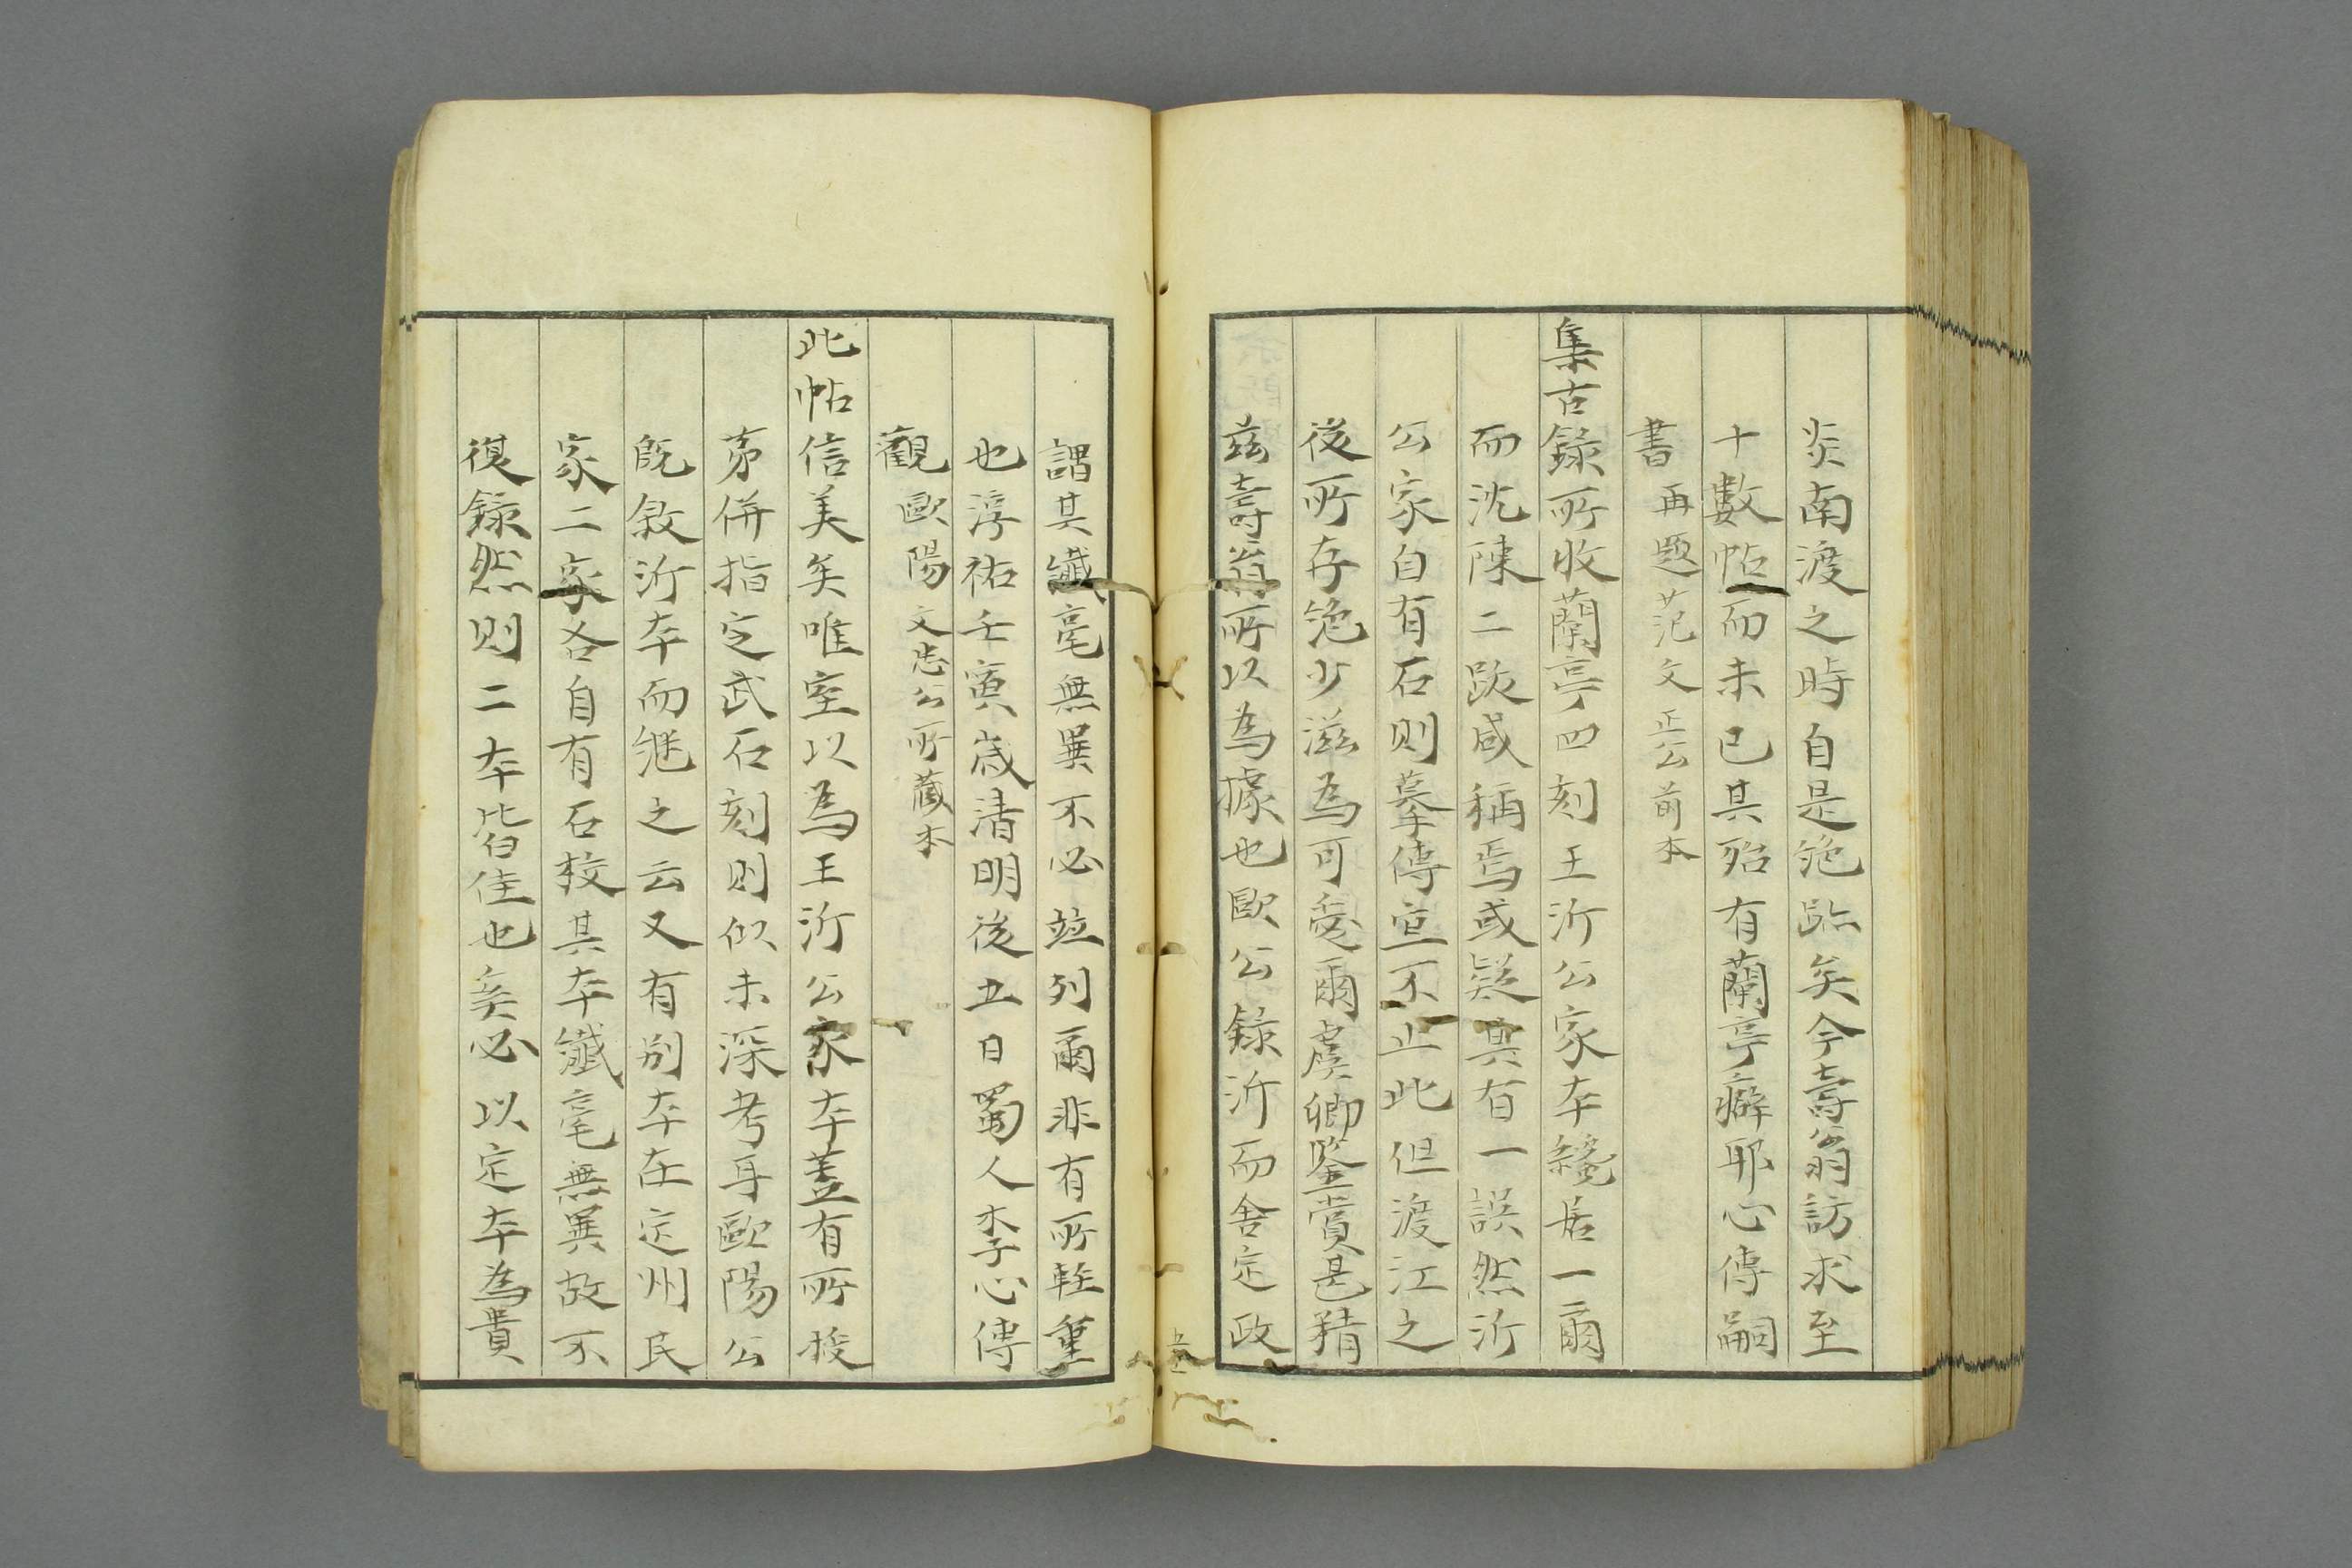 炎南渡之時自是絶跡矣今壽翁訪求至
十數帖而未已其殆有蘭亭癖耶心傳嗣
書再題范文正公前本
集古錄所收蘭亭四刻王沂公家本纔居一爾
而沈陳二跋咸稱焉或疑其有一誤然沂
公家自有石則摹傳宜不止此但渡江之
後所存絶少滋為可愛爾虞卿鑒賞甚精
茲壽翁所以為據也歐公錄沂而舍定政
謂其纖毫無異不必並列爾非有所輊重
也淳祐壬寅歲清明後五日蜀人李心傳
觀歐陽文忠公所藏本
此帖信美矣唯室以為王沂公家本蓋有所授
苐併指定武石刻則似未深考耳歐陽公
既敘沂本而継之云又有別本在定州民
家二家各自有石較其本纖毫無異故不
復錄然則二本皆佳也矣必以定本為貴